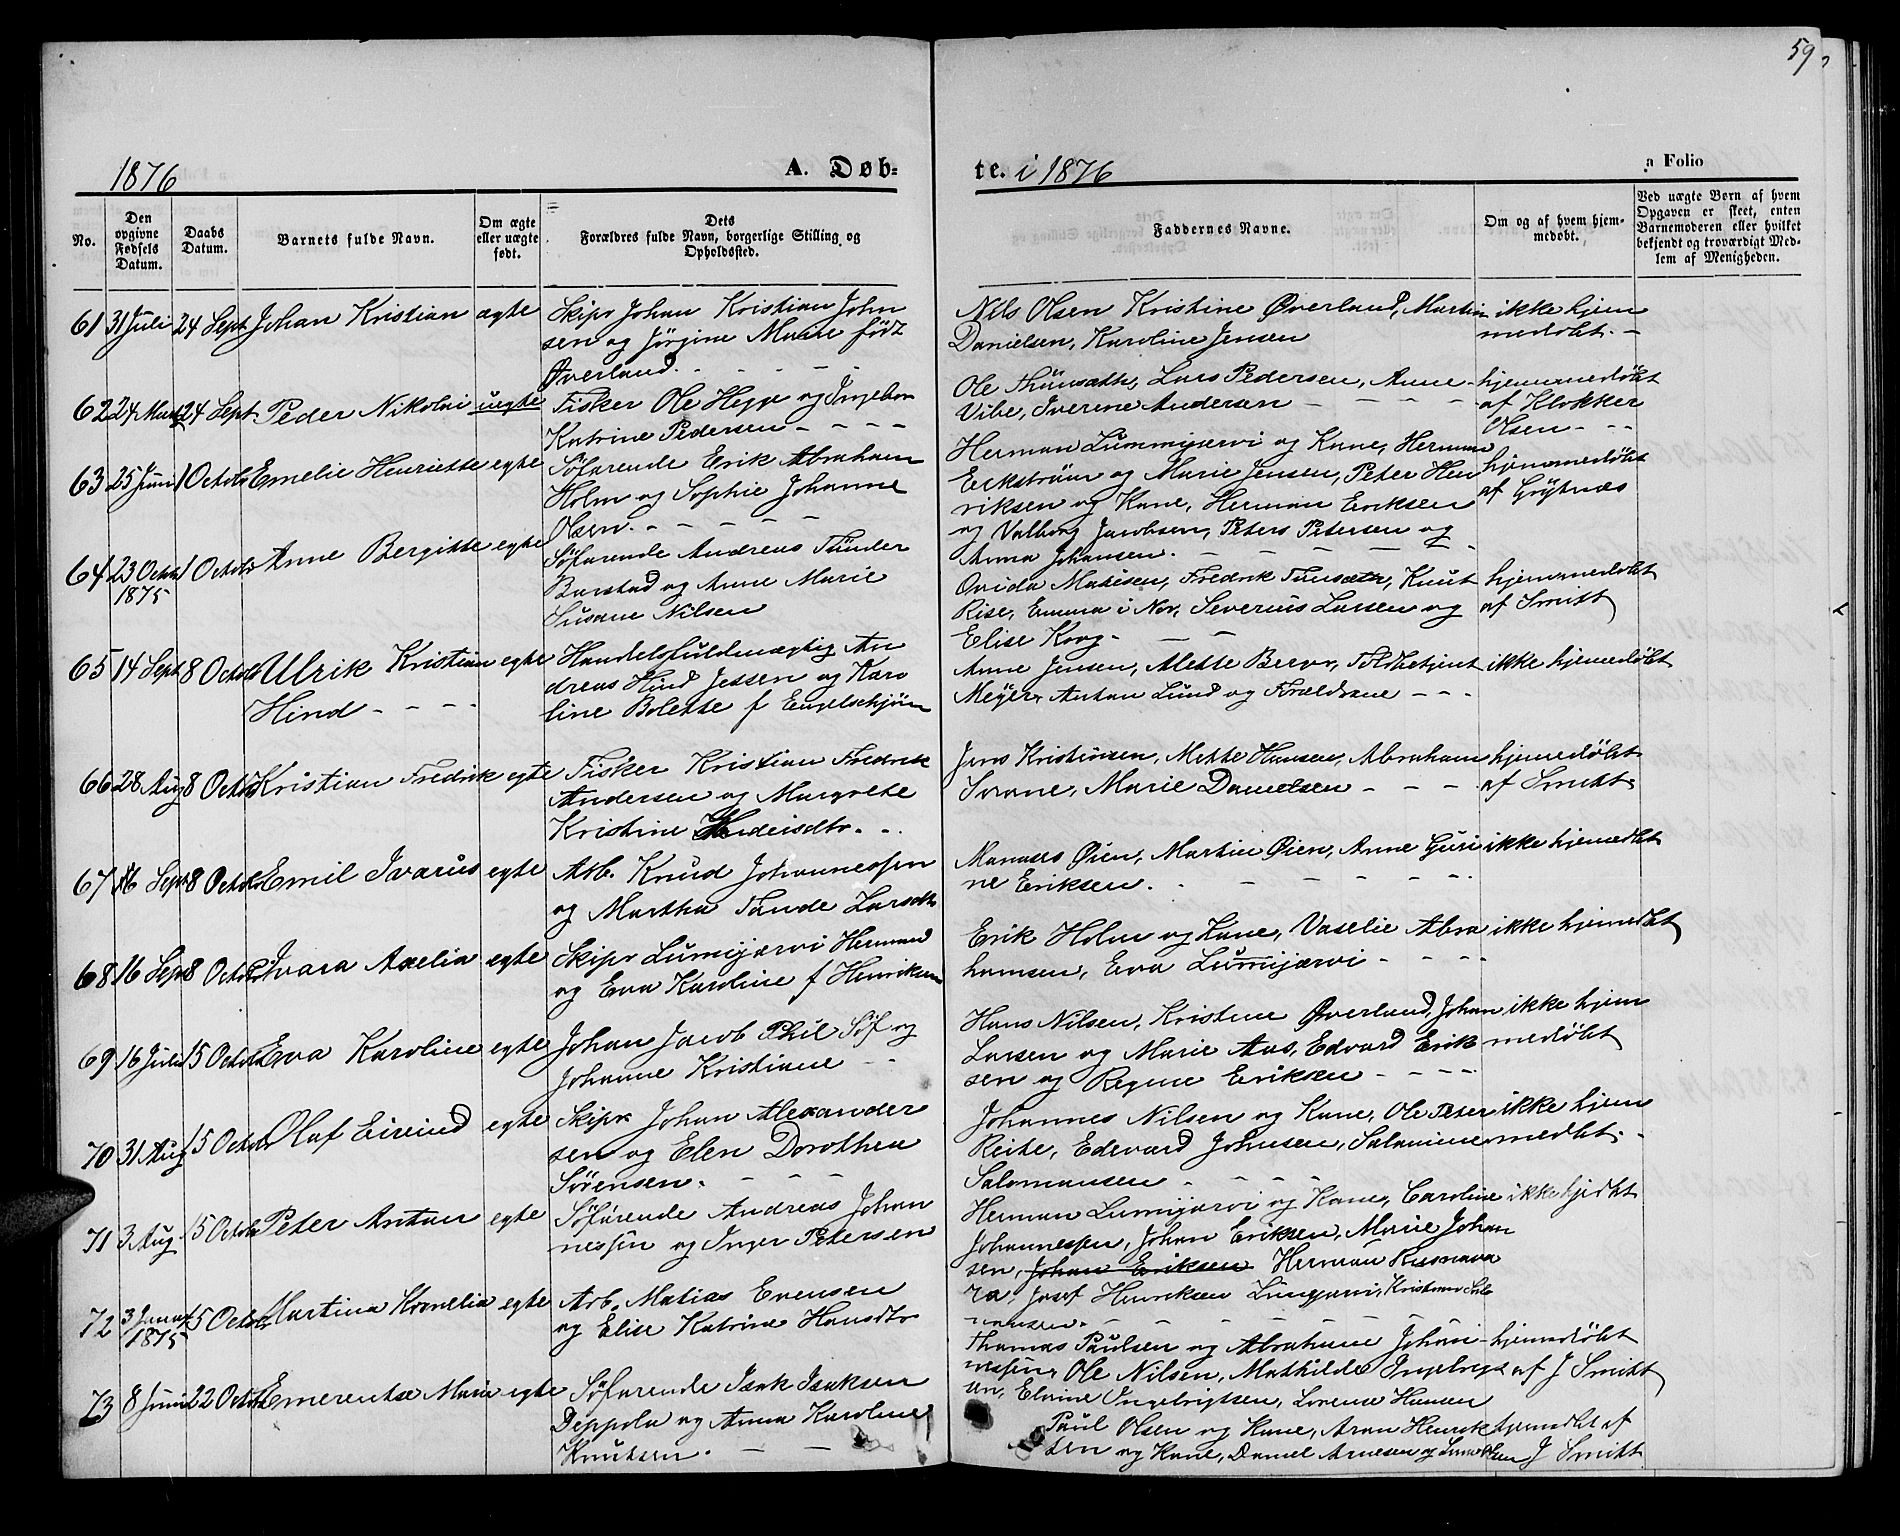 59
1876
A. Døb-
te. i 1876
a Folio
No.
Den opgivne Fødsels Datum.
Daabs Datum.
Barnets fulde Navn.
Om ægte eller uægte født.
Dets Forældres fulde Navn, borgerlige Stilling og Opholdssted.
Faddernes Navne.
Om og af hvem hjemmedøbt.
Ved uægte Børn af hvem Opgaven er skeet, enten Barnemoderen eller hvilket bekjendt og troværdigt Medlem af Menigheden.
61 31 Juli 24 Sept Johan Kristian ægte Skipr Johan Kristian John
sen og Jørgine Marie født
Øverland.
Nils Olsen Kristine Øverland, Martin
Danielsen, Karoline Jensen
ikke hjem
medøbt.
62 24 Mars 24 Sept Peder Nikolai uegte Fisker Ole Hegge og Ingebor
Katrine Pedersen
Ole Thunsæth, Lars Pedersen, Anne
Vibe, Iverine Andersen
hjemmedøbt
af Klokker
Olsen
63 25 Juni 1 Octob Emelie Henriette egte Søfarende Erik Abraham
Holm og Sophie Johanne
Olsen.
Herman Lummijærvi og Kone, Herman
Eckstrøm og Marie Jensen, Peter Hen
riksen og Kone, Herman Eriksen
og Valborg Jacobsen, Peters Petersen og
Anna Johansen.
hjemmedøbt
af Gøytnes
64 23 Octob 1875 1 Octob Anne Bergitte egte Søfarende Andreas Tünder
Barstad og Anne Marie
Susane Nilsen
Ovida Matisen, Fredrik Tunsæth, Knut
Rise, Emma i Nor, Severius Larsen og
Elise Krog
hjemmedøbt
af Smitt
65 14 Sept 8 Octob Ulrik Kristian egte
Hind
Handelsfuldmægtig An
dreas Hind Jessen og Karo
line Bolette f Engelschjøn
Anne Jensen, Alette Berger, Foldbetjent
Meyer, Antan Lund og Forældrene
ikke hjemedøbt
66 28 Aug 8 Octob Kristian Fredrik egte Fisker Kristian Fredrik
Andersen og Margrete
Kristine
Jens Kristiansen, Mette Hansen, Abraham
Svane, Marie Danielsen
hjemedøbt
af Smitt
67 16 Sept 8 Octob Emil Ivarus egte Arb. Knud Johannessen
og Martha Tande Larsdtr
Manases Øien, Martin Øien, Anne Guri
ne Eriksen.
ikke hjemedøbt
68 16 Sept 8 Octob Ivara Axelia egte Skipr Lumijærvi Hermand
og Eva Karoline f Henriksen
Erik Holm og Kone, Vaselie Abra
hamsen, Eva Lumijærvi
ikke hjemedøbt
69 16 Juli 15 Octob Eva Karoline egte Johan Jacob Phil Søf og
Johanne Kristiane
Hans Nilsen, Kristine Øverland, Johan
Larsen og Marie Aas, Edvard Erik
sen og Regine Eriksen
ikke hjem
medøbt
70 31 Aug 15 Octob Olaf Eivind egte Skipr Johan Alexander
sen og Elen Dorothea
Sørensen.
Johannes Nilsen og Kone, Ole Peter
Reite, Edevard Johnsen, Salamine
Salomonsen
ikke hjem
medøbt.
71 3 Aug. 15 Octob Peter Antan egte Søfarende Andreas Johan
nessen og Inger Petersen
Herman Lumijærvi og Kone, Caroline
Johannessen, Johan Eriksen, Marie Johan
sen, Johan Eriksen Herman Rusnava
ra, Josef Henriksen
ikke hjedøbt
72 3 1875 15 Octob Martina Kornelia egte Arb. Matias Evensen
og Elise Katrine Hansdtr
Thomas Paulsen og Abrahime Johan
nessen, Ole Nilsen, Mathilde Ingebrigt
sen, Elvine Ingebrigtsen, Lorense Hansen
hjemedøbt
af J Smitt
73 8 Juni 22 Octob Emerentse Maria egte Søfarende Isak Isaksen
Deppela og Anna Karoline
Knutsen.
Paul Olsen og Kone, Aron Henrik
sen og Kone, Daniel Arnesen og
hjemedbt af
J Smitt